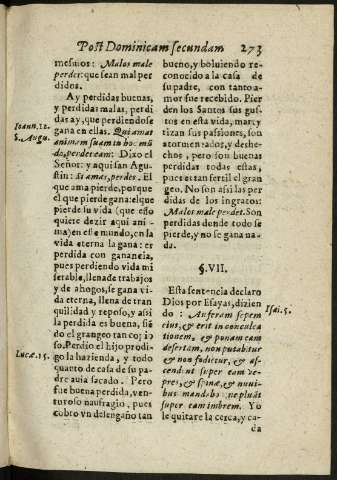 Post Dominicam secundam 273
mesmos: Malos male
perdet: que sean mal per
didos.
Ay perdidas buenas,
y perdidas malas, perdi
das ay, que perdiendose
gana en ellas. Qui amat
animam suam in hoc mũ
do, perdet eam: Dixo el
Señor: y aqui san Agus
tin: Si amas, perdes. El
que ama pierde, porque
el que pierde gana: el que
pierde su vida (que esso
quiere dezir aqui ani-
ma) en este mundo, en la
vida eterna la gana: er
perdida con ganancia,
pues perdiendo vida mi
serable, llena de trabajos
y de ahogos, se gana vi
da eterna, llena de tran
quilidad y reposo, y assi
la perdida es buena, siẽ
do el grangeo tan copio
so. Perdio el hijo prodi-
go la hazienda, y todo
quanto de casa de su pa
dre auia sacado. Pero
fue buena perdida, ven-
turoso naufragio, pues
cobro vn desengaño tan
Ioann. 12.
S. Augu.
Lucæ. 15.
bueno, y boluiendo re-
conocido a la casa de
su padre, con tanto a-
mor fue recebido. Pier
den los Santos sus gus
tos en esta vida, martyr
tizan sus passiones, son
atormentados, y deshe-
chos, pero son buenas
perdidas todas estas,
pues es tan fertil el gran
geo. No son assi las per
didas de los ingratos:
Malos male perdet. Son
perdidas donde todo se
pierde, y no se gana na-
da.
§. VII.
Esta sentencia declaro
Dios por Esayas, dizien
do: Auferam sepem
eius, & erit in conculca
tionem, & ponam eam
desertam, non putabitur
& non fodietur, & as-
cendent super eam ve-
pres, & spinæ, & nuui-
bus mandabo ne pluãt
super eam imbrem. Yo
le quitare la cerca, y ca-
da
Isai. 5.